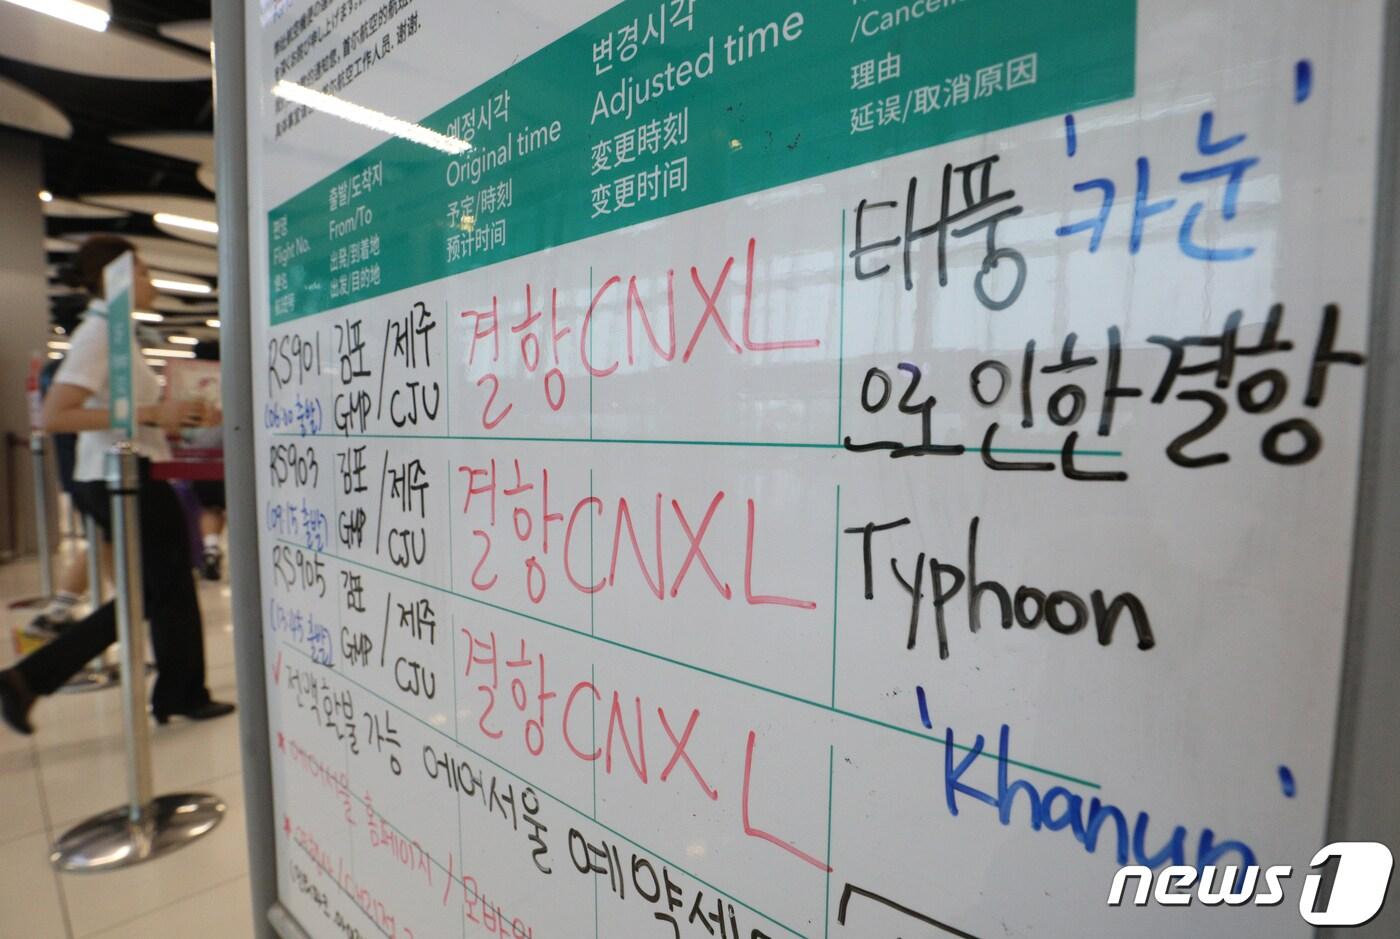 首尔航空工作人员. 谢谢.
편명
Flight No.
便名
출발/도착지
From/To
出発/到着地
出发/目的地
예정시각
Original time
予定/時刻
预计时间
변경시각
Adjusted time
変更時刻
变更时间
/Cancell
理由
延误/取消原因
RS901
김포
GMP
/제주
CJU
결항 CNXL
RS903
(09:15 출발)
김포
GMP
/제주
CJU
결항 CNXL
RS905
(13:45 출발)
김포
GMP
/제주
CJU
결항 CNXL
태풍 '카눈'
으로 인한 결항
Typhoon
'Khanun'
✓ 전액환불 가능 에어서울 예약센
* 에어서울 홈페이지 / 모바일
news1